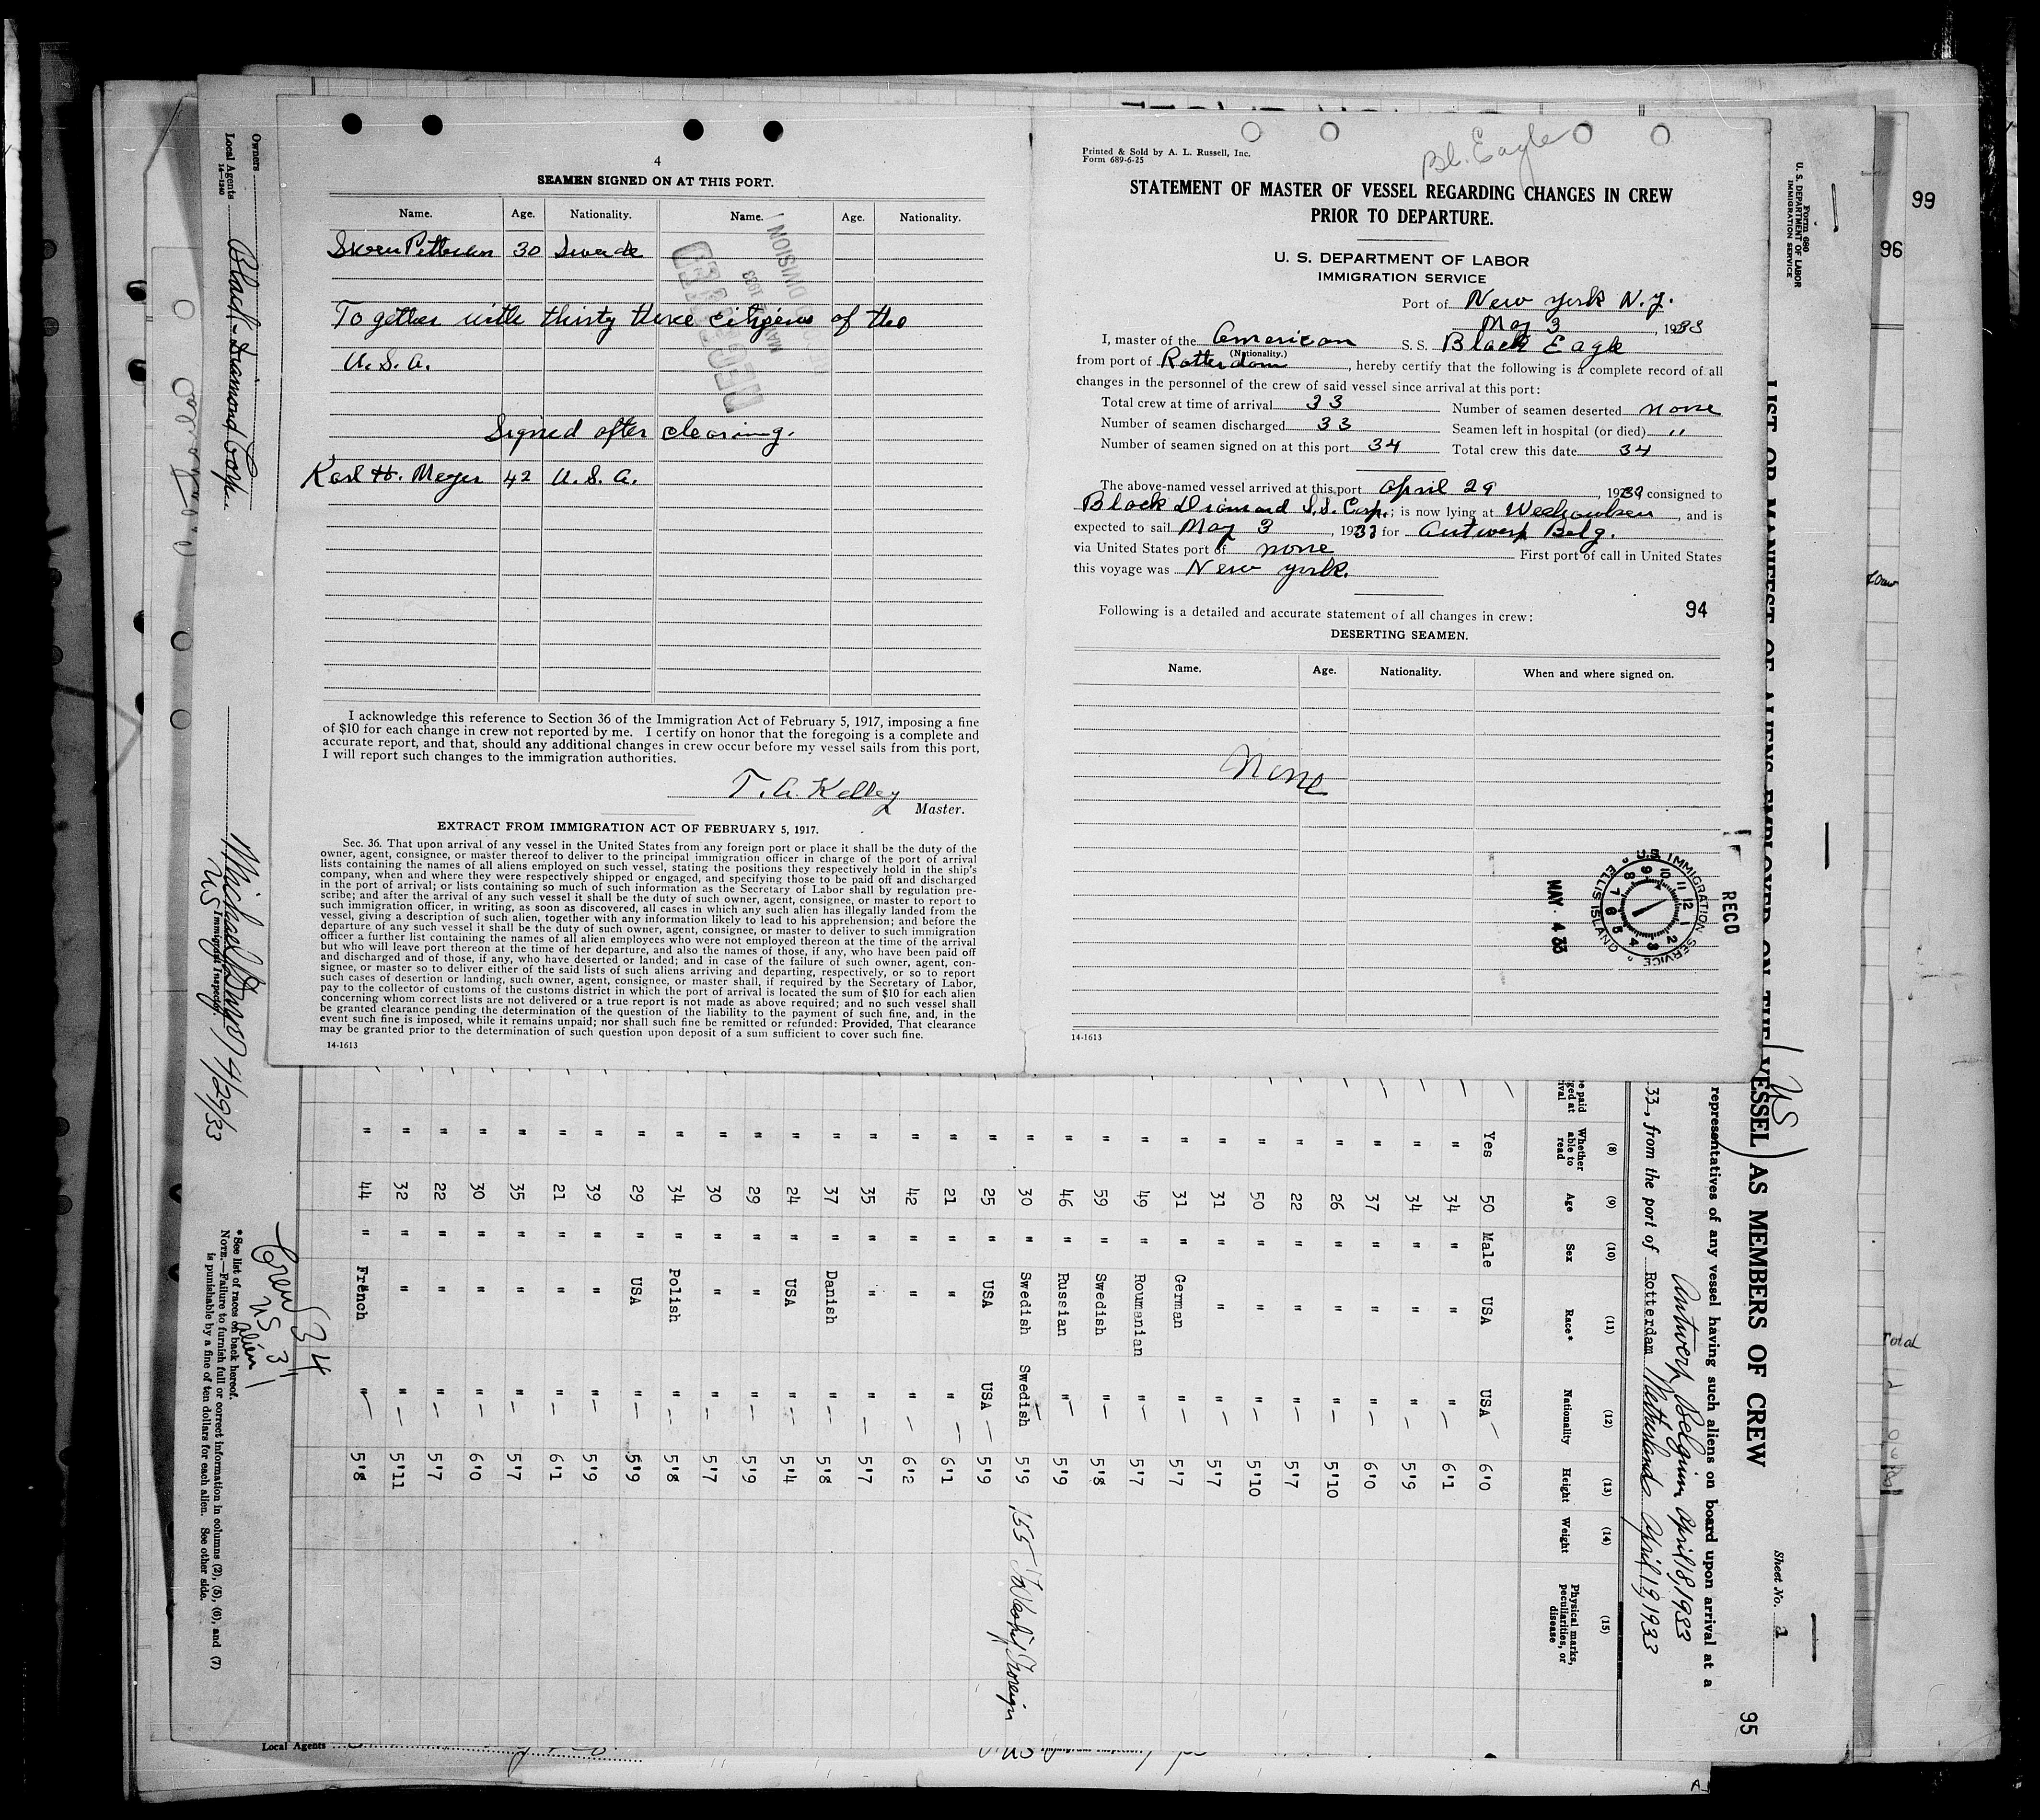 4
SEAMEN SIGNED ON AT THIS PORT.
Name. Age. Nationality. Name. Age. Nationality.
30
Together with thirty three citizens of the
U.S.A.
Signed after clearing.
Karl H. Meyer 42 U.S.A.
I acknowledge this reference to Section 36 of the Immigration Act of February 5, 1917, imposing a fine
of $10 for each change in crew not reported by me. I certify on honor that the foregoing is a complete and
accurate report, and that, should any additional changes in crew occur before my vessel sails from this port,
I will report such changes to the immigration authorities.
T. A. Kelley
Master.
EXTRACT FROM IMMIGRATION ACT OF FEBRUARY 5, 1917.
Sec. 36. That upon arrival of any vessel in the United States from any foreign port or place it shall be the duty of the
owner, agent, consignee, or master thereof to deliver to the principal immigration officer in charge of the port of arrival
lists containing the names of all aliens employed on such vessel, stating the positions they respectively hold in the ship's
company, when and where they were respectively shipped or engaged, and specifying those to be paid off and discharged
in the port of arrival; or lists containing so much of such information as the Secretary of Labor shall by regulation pre-
scribe; and after the arrival of any such vessel it shall be the duty of such owner, agent, consignee, or master to report to
such immigration officer, in writing, as soon as discovered, all cases in which any such alien has illegally landed from the
vessel, giving a description of such alien, together with any information likely to lead to his apprehension; and before the
departure of any such vessel it shall be the duty of such owner, agent, consignee, or master to deliver to such immigration
officer a further list containing the names of all alien employees who were not employed thereon at the time of the arrival
but who will leave port thereon at the time of her departure, and also the names of those, if any, who have been paid off
and discharged and of those, if any, who have deserted or landed; and in case of the failure of such owner, agent, con-
signee, or master so to deliver either of the said lists of such aliens arriving and departing, respectively, or so to report
such cases of desertion or landing, such owner, agent, consignee, or master shall, if required by the Secretary of Labor,
pay to the collector of customs of the customs district in which the port of arrival is located the sum of $10 for each alien
concerning whom correct lists are not delivered or a true report is not made as above required; and no such vessel shall
be granted clearance pending the determination of the question of the liability to the payment of such fine, and, in the
event such fine is imposed, while it remains unpaid; nor shall such fine be remitted or refunded: Provided, That clearance
may be granted prior to the determination of such question upon deposit of a sum sufficient to cover such fine.
14-1613
Bl. Eagle
Printed & Sold by A. L. Russell, Inc.
Form 689-6-25
STATEMENT OF MASTER OF VESSEL REGARDING CHANGES IN CREW
PRIOR TO DEPARTURE.
U. S. DEPARTMENT OF LABOR
IMMIGRATION SERVICE
Port of New York N.Y.
May 3, 1933
I, master of the American S. S. Black Eagle
(Nationality.)
from port of Rotterdam, hereby certify that the following is a complete record of all
changes in the personnel of the crew of said vessel since arrival at this port:
Total crew at time of arrival 33 Number of seamen deserted none
Number of seamen discharged 33 Seamen left in hospital (or died) "
Number of seamen signed on at this port 34 Total crew this date 34
The above-named vessel arrived at this port April 29, consigned to
Black Diamond S.S. Corp.; is now lying at Weehawken, and is
expected to sail May 3, 1933 for Antwerp Belg.
via United States port of none First port of call in United States
this voyage was New York.
Following is a detailed and accurate statement of all changes in crew:
94
DESERTING SEAMEN.
Name. Age. Nationality. When and where signed on.
None
RECD
U.S. IMMIGRATION SERVICE
ELLIS ISLAND
MAY 4 33
14-1613
Owners
Local Agents Black Diamond Corp.
14-1240
4/29/33
Immigrant Inspector.
Crew 34
US 33
alien 1
*See list of races on back hereof.
NOTE.—Failure to furnish full or correct information in columns (2), (5), (6), and (7)
is punishable by a fine of ten dollars for each alien. See other side.
Form 680
U. S. DEPARTMENT OF LABOR
IMMIGRATION SERVICE
Sheet No. 1
95
LIST OR MANIFEST OF ALIENS EMPLOYED ON THE VESSEL AS MEMBERS OF CREW
US
representatives of any vessel having such aliens on board upon arrival at a
Antwerp, Belgium April 18, 1933
33, from the port of Rotterdam Netherlands April 19, 1933
(8) Whether able to read (9) Age (10) Sex (11) Race* (12) Nationality (13) Height (14) Weight (15) Physical marks, peculiarities, or disease
Yes 50 Male USA USA 6'0
" 34 " " " 6'1
" 34 " " " 5'9
" 37 " " " 6'0
" 26 " " " 5'10
" 22 " " " 5'7
" 50 " " " 5'10
" 31 " " " 5'7
" 31 " German " 5'7
" 49 " Roumanian " 5'7
" 59 " Swedish " 5'8
" 46 " Russian " 5'9
" 30 " Swedish Swedish 5'9 155
" 25 " USA USA 5'9
" 21 " " " 6'1
" 42 " " " 6'2
" 35 " " " 5'7
" 37 " Danish " 5'8
" 24 " USA " 5'4
" 29 " " " 5'9
" 30 " " " 5'7
" 34 " Polish " 5'8
" 29 " USA " 5'9
" 39 " " " 5'9
" 21 " " " 6'1
" 35 " " " 5'7
" 30 " " " 6'0
" 22 " " " 5'7
" 32 " " " 5'11
" 44 " French " 5'8
Local Agents
99
96
Total